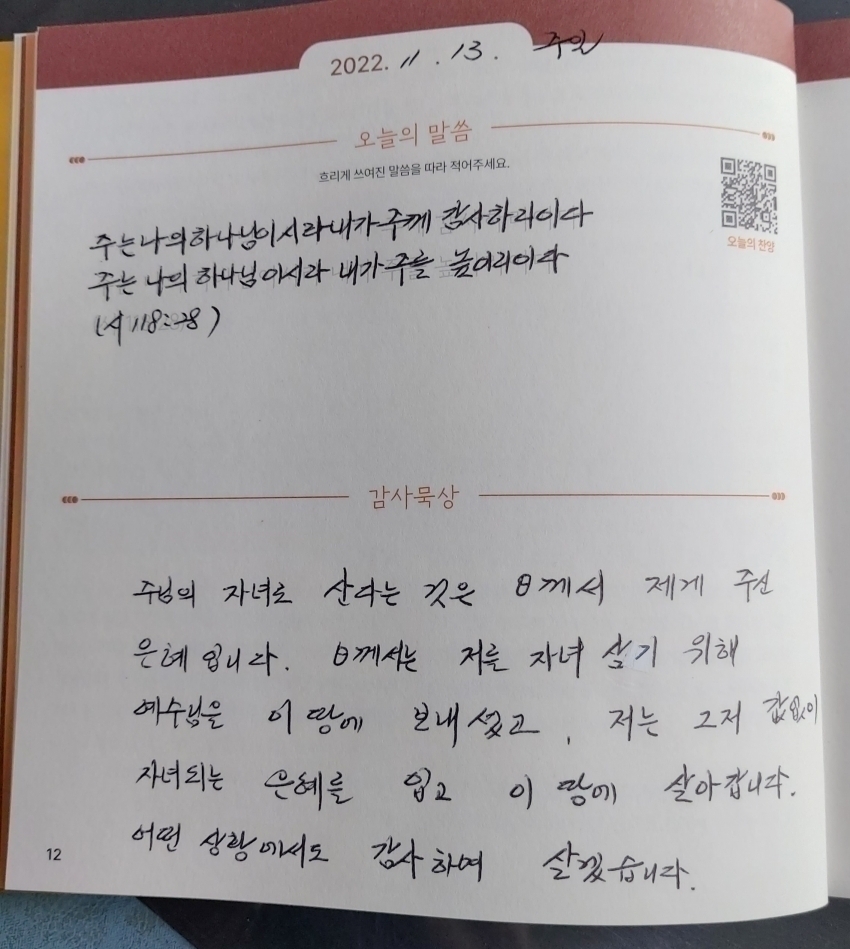 2022. 11 . 13 . 주일
오늘의 말씀
흐리게 쓰여진 말씀을 따라 적어주세요.
주는 나의 하나님이시라 내가 주께 감사하리이다
주는 나의 하나님이시라 내가 주를 높이리이다
(시 118:28)
오늘의 찬양
감사묵상
주님의 자녀로 산다는 것은 께서 제게 주신
은혜입니다. 께서는 저를 자녀 삼기 위해
예수님을 이 땅에 보내셨고, 저는 그저 값없이
자녀되는 은혜를 입고 이 땅에 살아갑니다.
어떤 상황에서도 감사하며 살겠습니다.
12